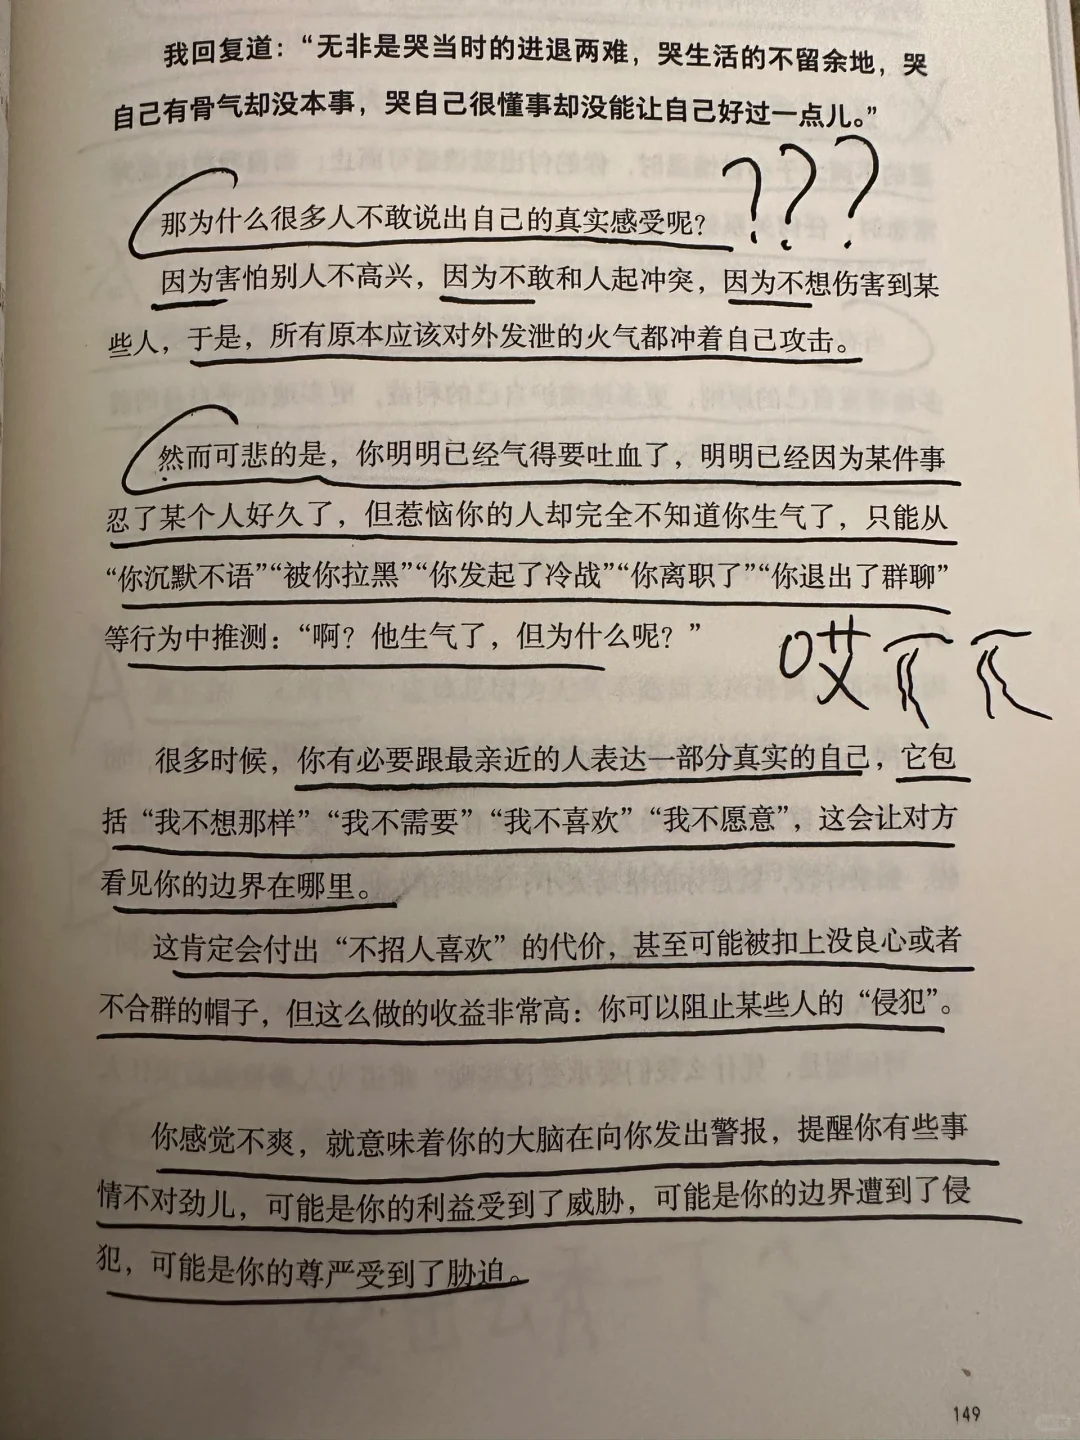 我回复道：“无非是哭当时的进退两难，哭生活的不留余地，哭
自己有骨气却没本事，哭自己很懂事却没能让自己好过一点儿。”
???
那为什么很多人不敢说出自己的真实感受呢？
因为害怕别人不高兴，因为不敢和人起冲突，因为不想伤害到某
些人，于是，所有原本应该对外发泄的火气都冲着自己攻击。
然而可悲的是，你明明已经气得要吐血了，明明已经因为某件事
忍了某个人好久了，但惹恼你的人却完全不知道你生气了，只能从
“你沉默不语”“被你拉黑”“你发起了冷战”“你离职了”“你退出了群聊”
等行为中推测：“啊？他生气了，但为什么呢？”
哎
很多时候，你有必要跟最亲近的人表达一部分真实的自己，它包
括“我不想那样”“我不需要”“我不喜欢”“我不愿意”，这会让对方
看见你的边界在哪里。
这肯定会付出“不招人喜欢”的代价，甚至可能被扣上没良心或者
不合群的帽子，但这么做的收益非常高：你可以阻止某些人的“侵犯”。
你感觉不爽，就意味着你的大脑在向你发出警报，提醒你有些事
情不对劲儿，可能是你的利益受到了威胁，可能是你的边界遭到了侵
犯，可能是你的尊严受到了胁迫。
149